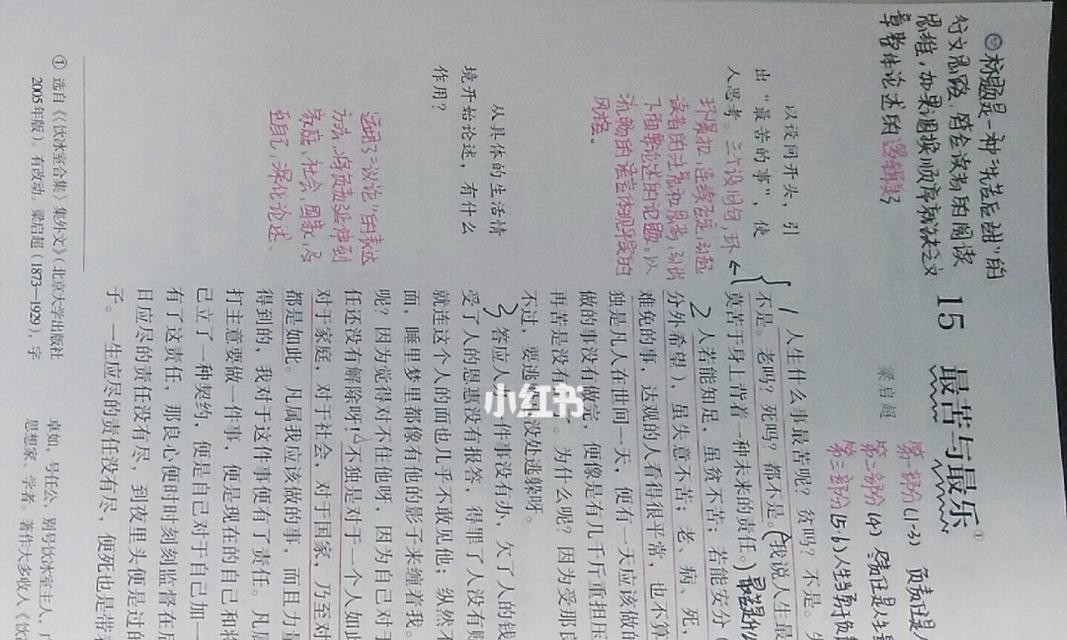 标题是一种“先苦后甜”的
行文思路，符合读者的阅读
思维，如果调换顺序就缺乏文
章整体论述的逻辑美了
15 最苦与最乐①
梁启超
第一部分(1-3) 负责任是
第二部分(4) 尽责任是人生最
第三部分(5-6)人生当勇于负
以设问开头，引
出“最苦的事”，使
人思考。三个设问句，环
环紧扣，连续发起，引起
读者的注意和思考，引出
下面要论述的论题。以
流畅的语言体现早段的
风格。
从具体的生活情
境开始论述，有什么
作用？
运用了“议论”的表达
方式，将负责延伸到
家庭，社会，国家，乃
至自己，深化论述。
1 人生什么事最苦呢？贫吗？不是。失
不是。老吗？死吗？都不是。我说人生最
莫苦于身上背着一种未来的责任。
2 人若能知足，虽贫不苦；若能安分（
分外希望），虽失意不苦；老、病、死，
难免的事，达观的人看得很平常，也不算
独是凡人在世间一天，便有一天应该做的
做的事没有做完，便像是有几千斤重担压
再苦是没有了。为什么呢？因为受那良
不过，要逃没处逃躲呀。
3 答应人一件事没有办，欠了人的钱
受了人的恩惠没有报答，得罪了人没有赔
就连这个人的面也几乎不敢见他；纵然不
面，睡里梦里都像有他的影子来缠着我。
呢？因为觉得对不住他呀，因为自己对于
任还没有解除呀！不独是对于一个人如此
对于家庭，对于社会，对于国家，乃至对
都是如此。凡属我应该做的事，而且力量
得到的，我对于这件事便有了责任。凡属
打主意要做一件事，便是现在的自己和将
己立了一种契约，便是自己对于自己加一
有了这责任，那良心便时时刻刻监督在后
日应尽的责任没有尽，到夜里头便是过的
子。一生应尽的责任没有尽，便死也是带着
① 选自《〈饮冰室合集〉集外文》（北京大学出版社
2005年版）。有改动。梁启超（1873—1929），字
卓如，号任公，别号饮冰室主人，广
思想家、学者。著作大多收入《饮冰
小红书